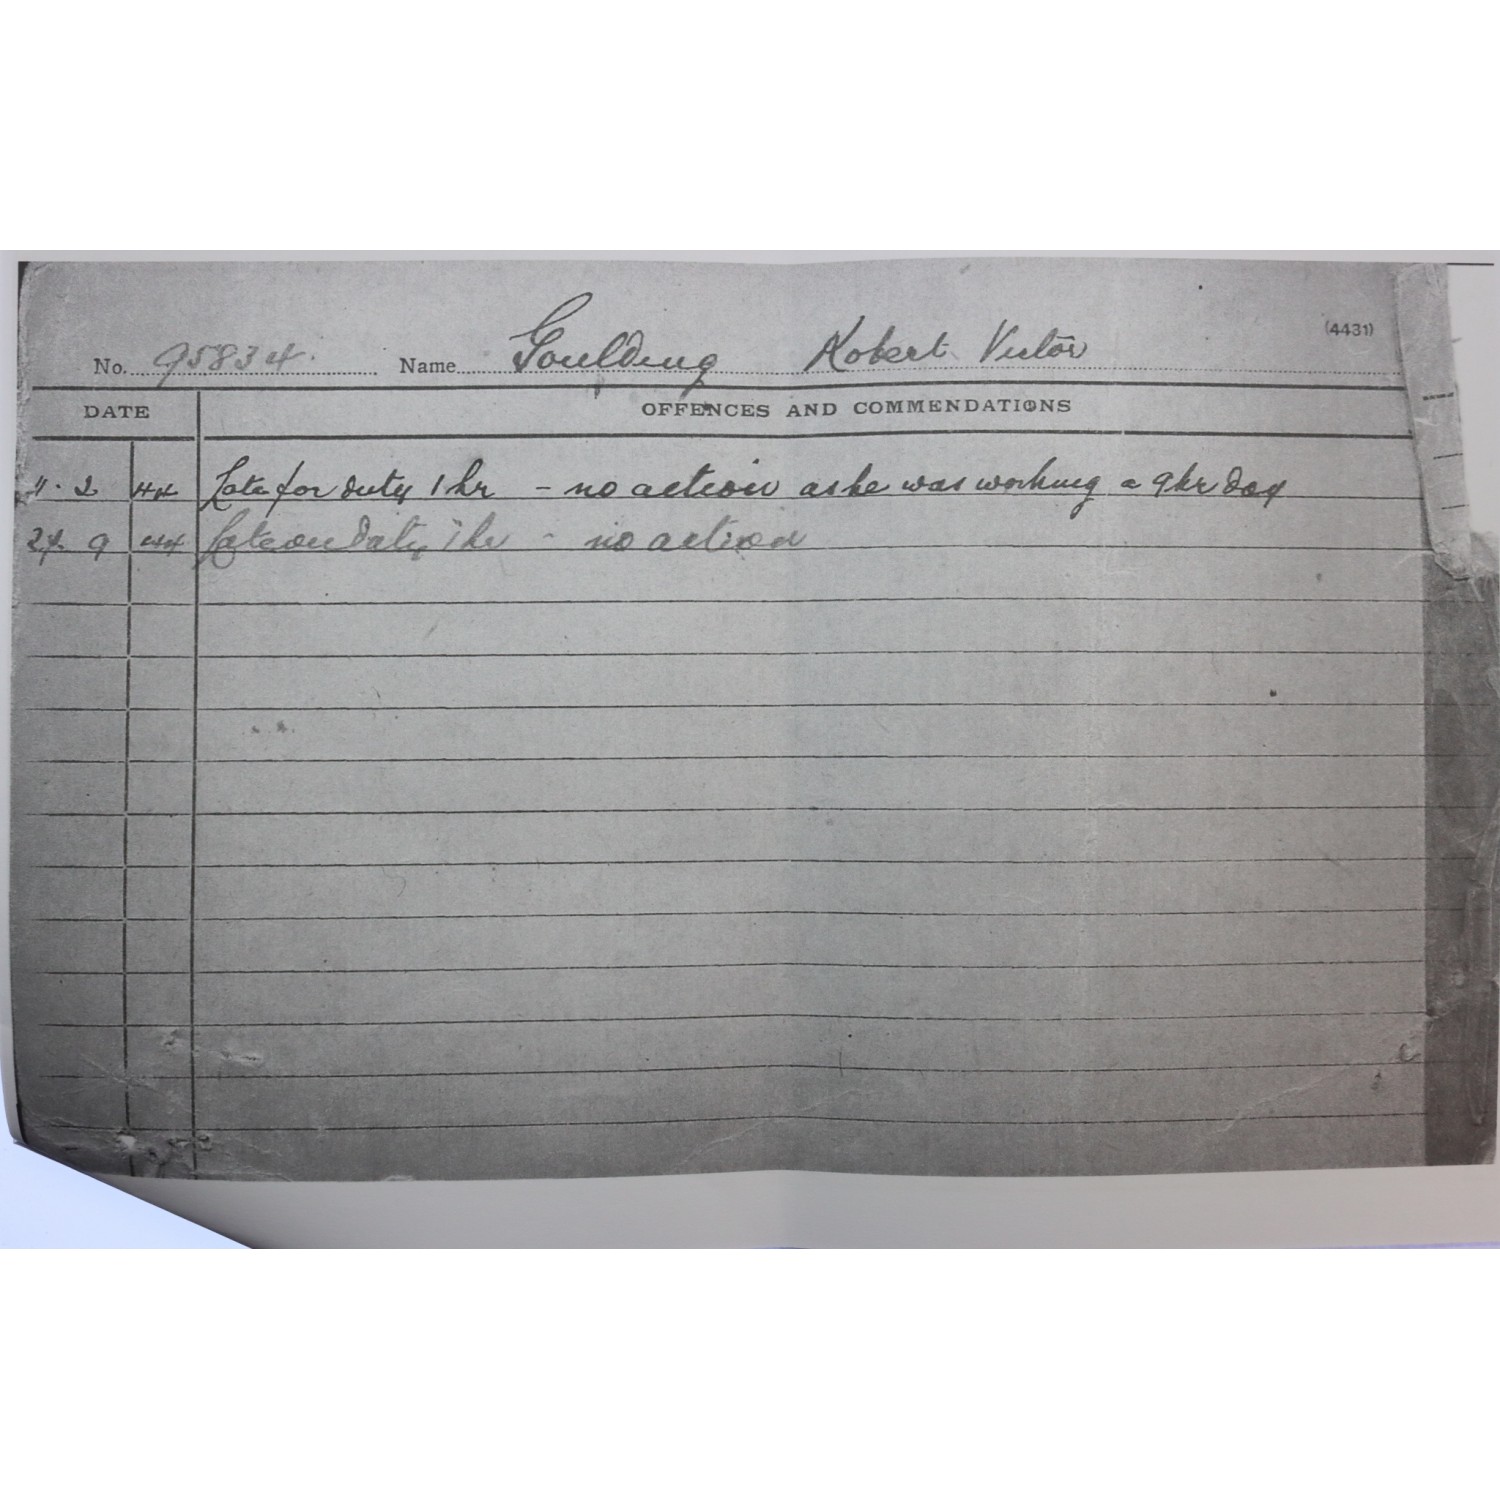 (4431)
No. 95834. Name Goulding Robert Victor
DATE OFFENCES AND COMMENDATIONS
11. 2 44 Late for duty 1 hr - no action as he was working a 9hr day
24. 9 44 Late on Duty 1 hr - no action